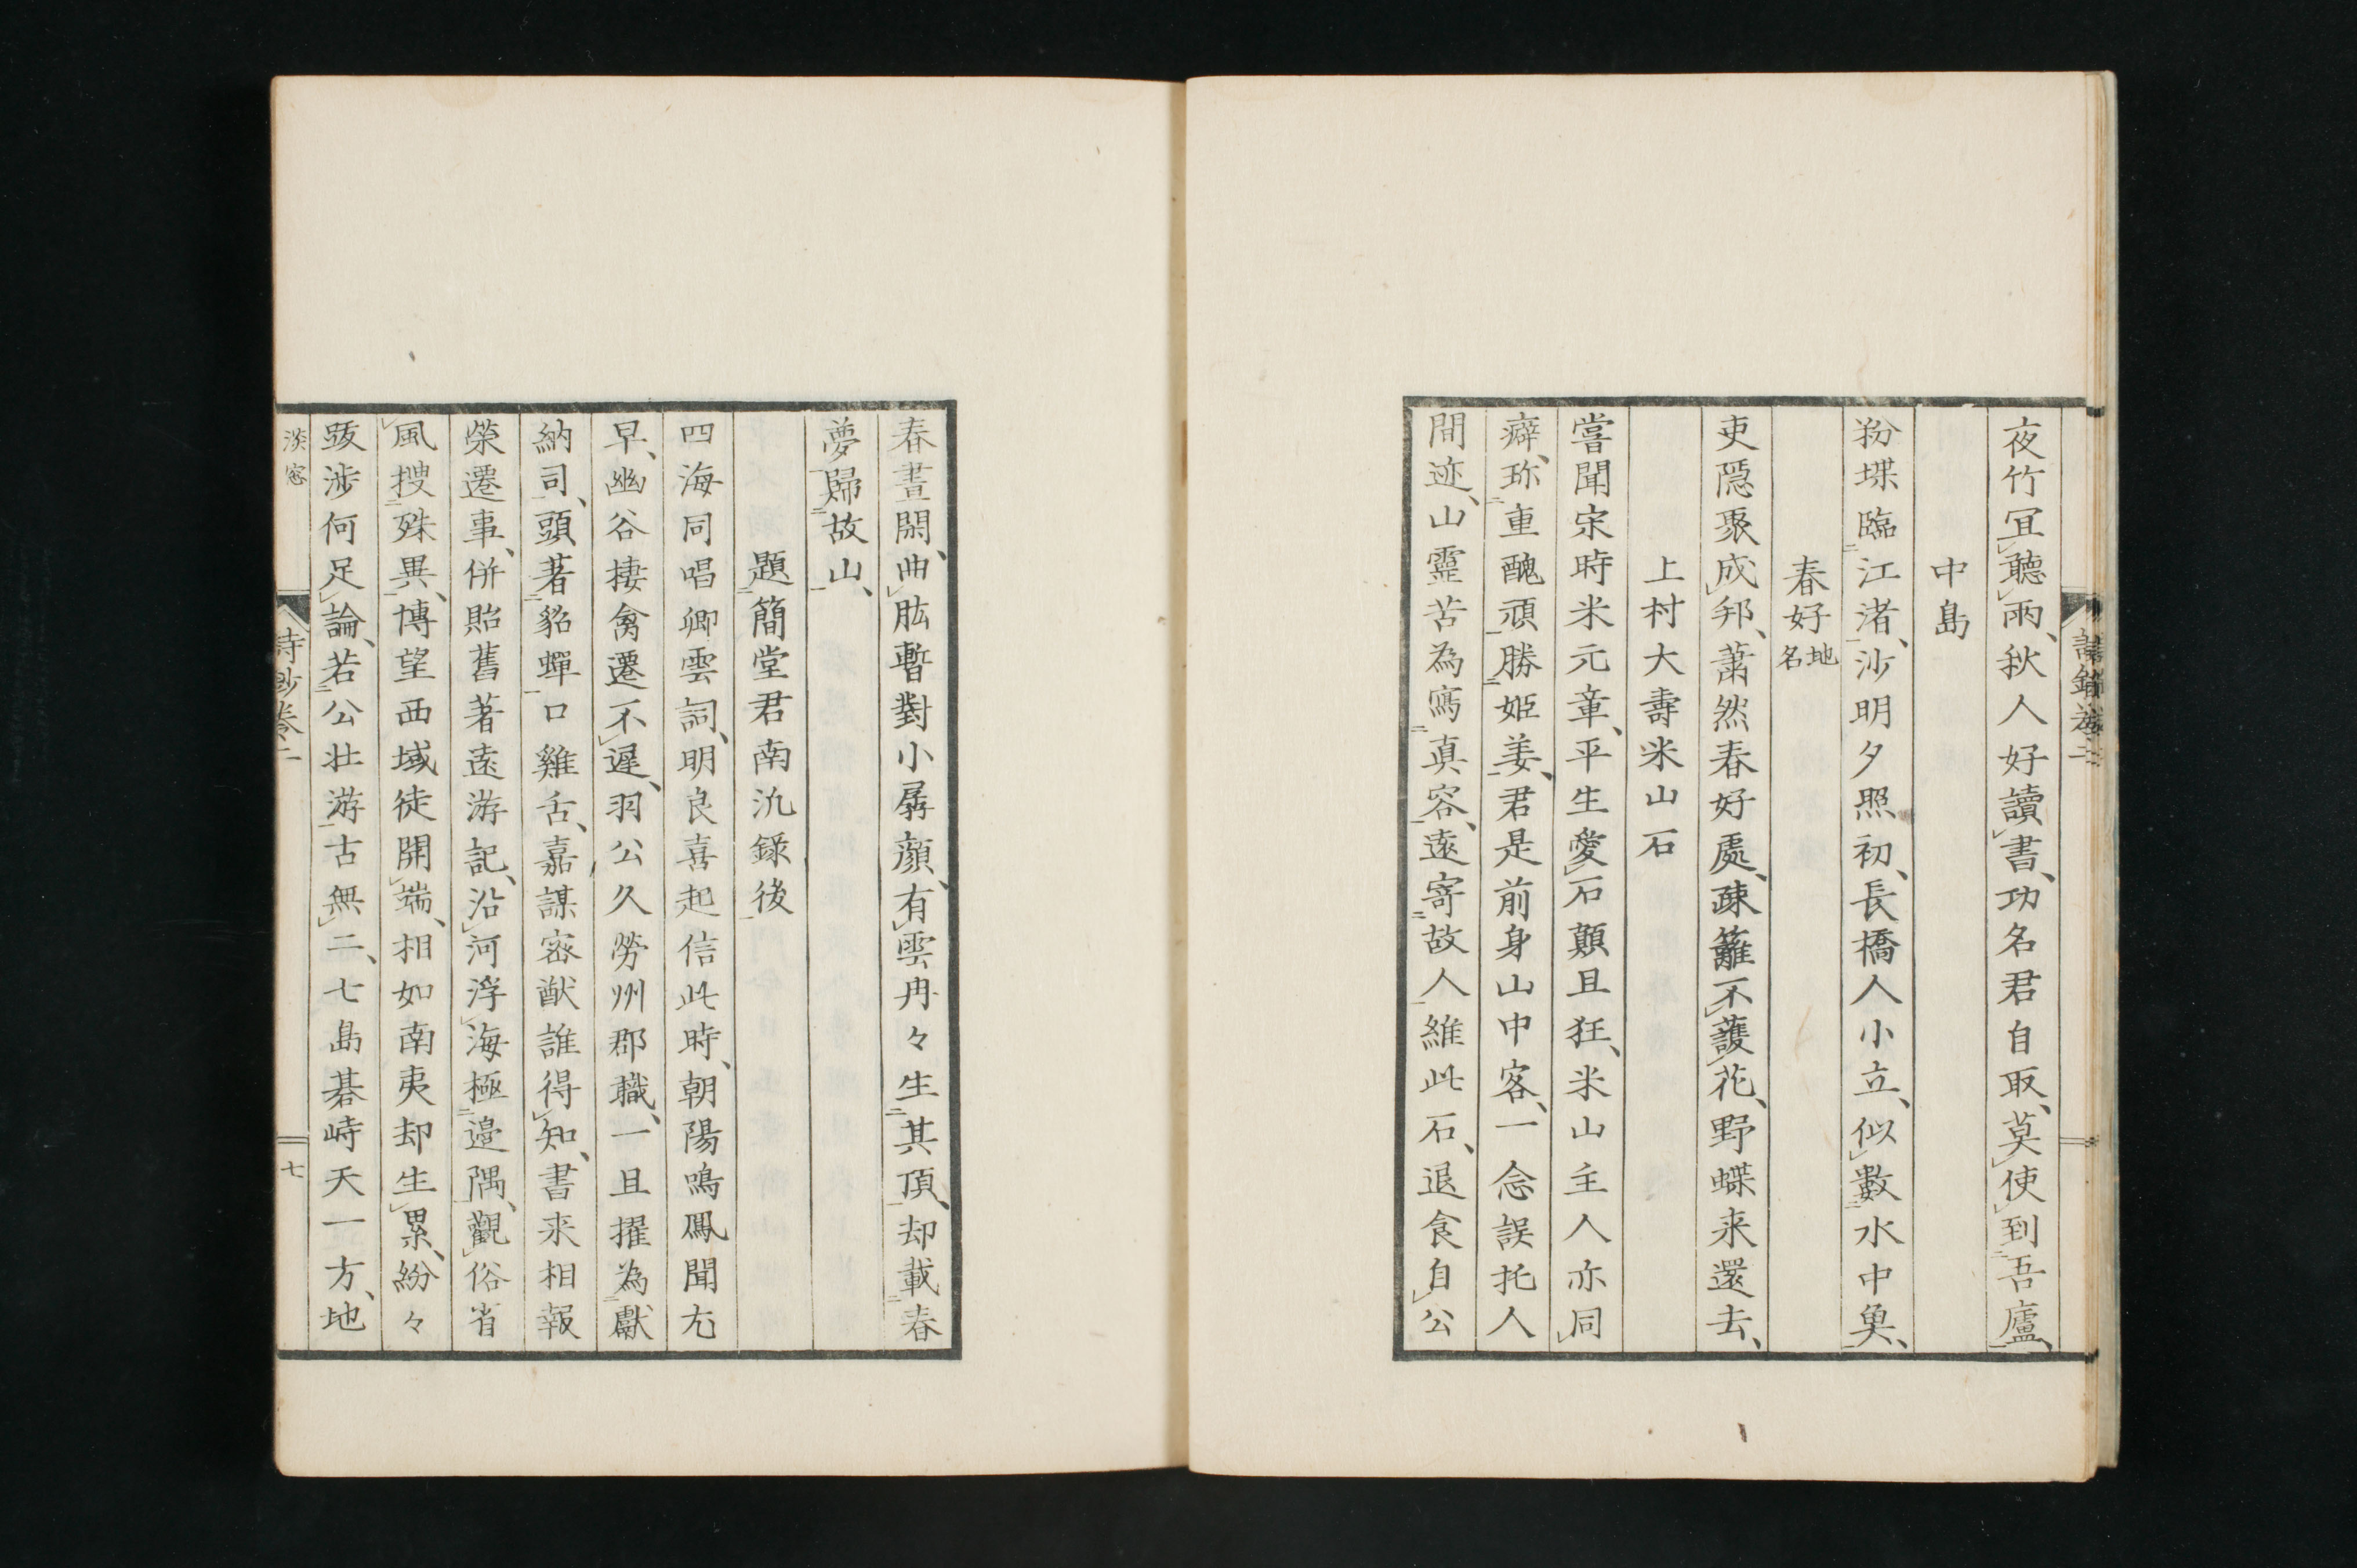 夜竹冝聽雨、秋人好讀書、功名君自取、莫使到吾廬、
中島
粉堞臨江渚、沙明夕照初、長橋人小立、似數水中魚、
春好地名
吏隱聚成邦、蕭然春好處、疎籬不護花、野蝶来還去、
上村大壽米山石
嘗聞宋時米元章、平生愛石顛且狂、米山主人亦同
癖、珎重醜頑勝姬姜、君是前身山中客、一念誤托人
間迹、山靈苦為寫真容、遠寄故人維此石、退食自公
春晝閑、曲肱暫對小孱顔、有雲冉々生其頂、却載春
夢歸故山、
題簡堂君南氿錄後
四海同唱卿雲詞、明良喜起信此時、朝陽鳴鳳聞尢
早、幽谷棲禽遷不遲、羽公久勞州郡職、一旦擢為獻
納司、頭著貂蟬口雞舌、嘉謀宻猷誰得知、書来相報
榮遷事、併貽舊著遠游記、沿河浮海極邉隅、觀俗省
風搜殊異、博望西域徒開端、相如南夷却生累、紛々
跋渉何足論、若公壮游古無二、七島碁峙天一方、地
詩鈔卷二
七